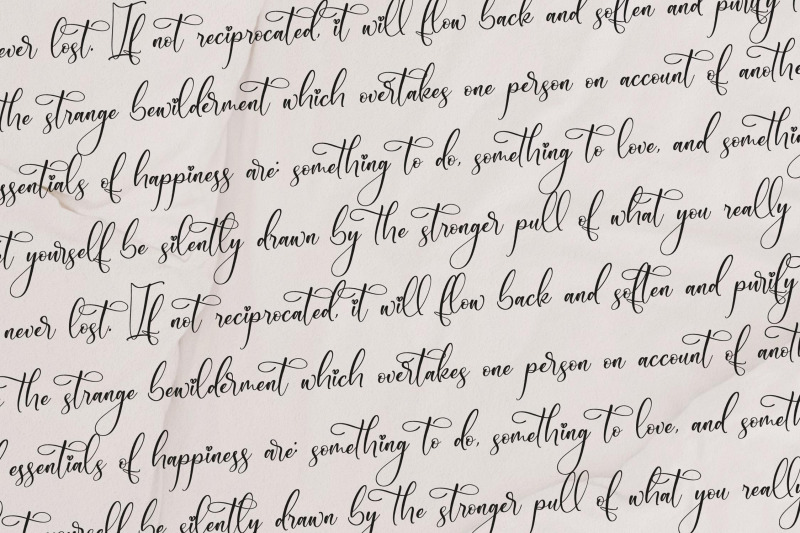 ever lost. If not reciprocated, it will flow back and soften and purify
the strange bewilderment which overtakes one person on account of anothe
ssentials of happiness are: something to do, something to love, and somethin
t yourself be silently drawn by the stronger pull of what you really
never lost. If not reciprocated, it will flow back and soften and purify
the strange bewilderment which overtakes one person on account of anoth
essentials of happiness are: something to do, something to love, and someth
t yourself be silently drawn by the stronger pull of what you really